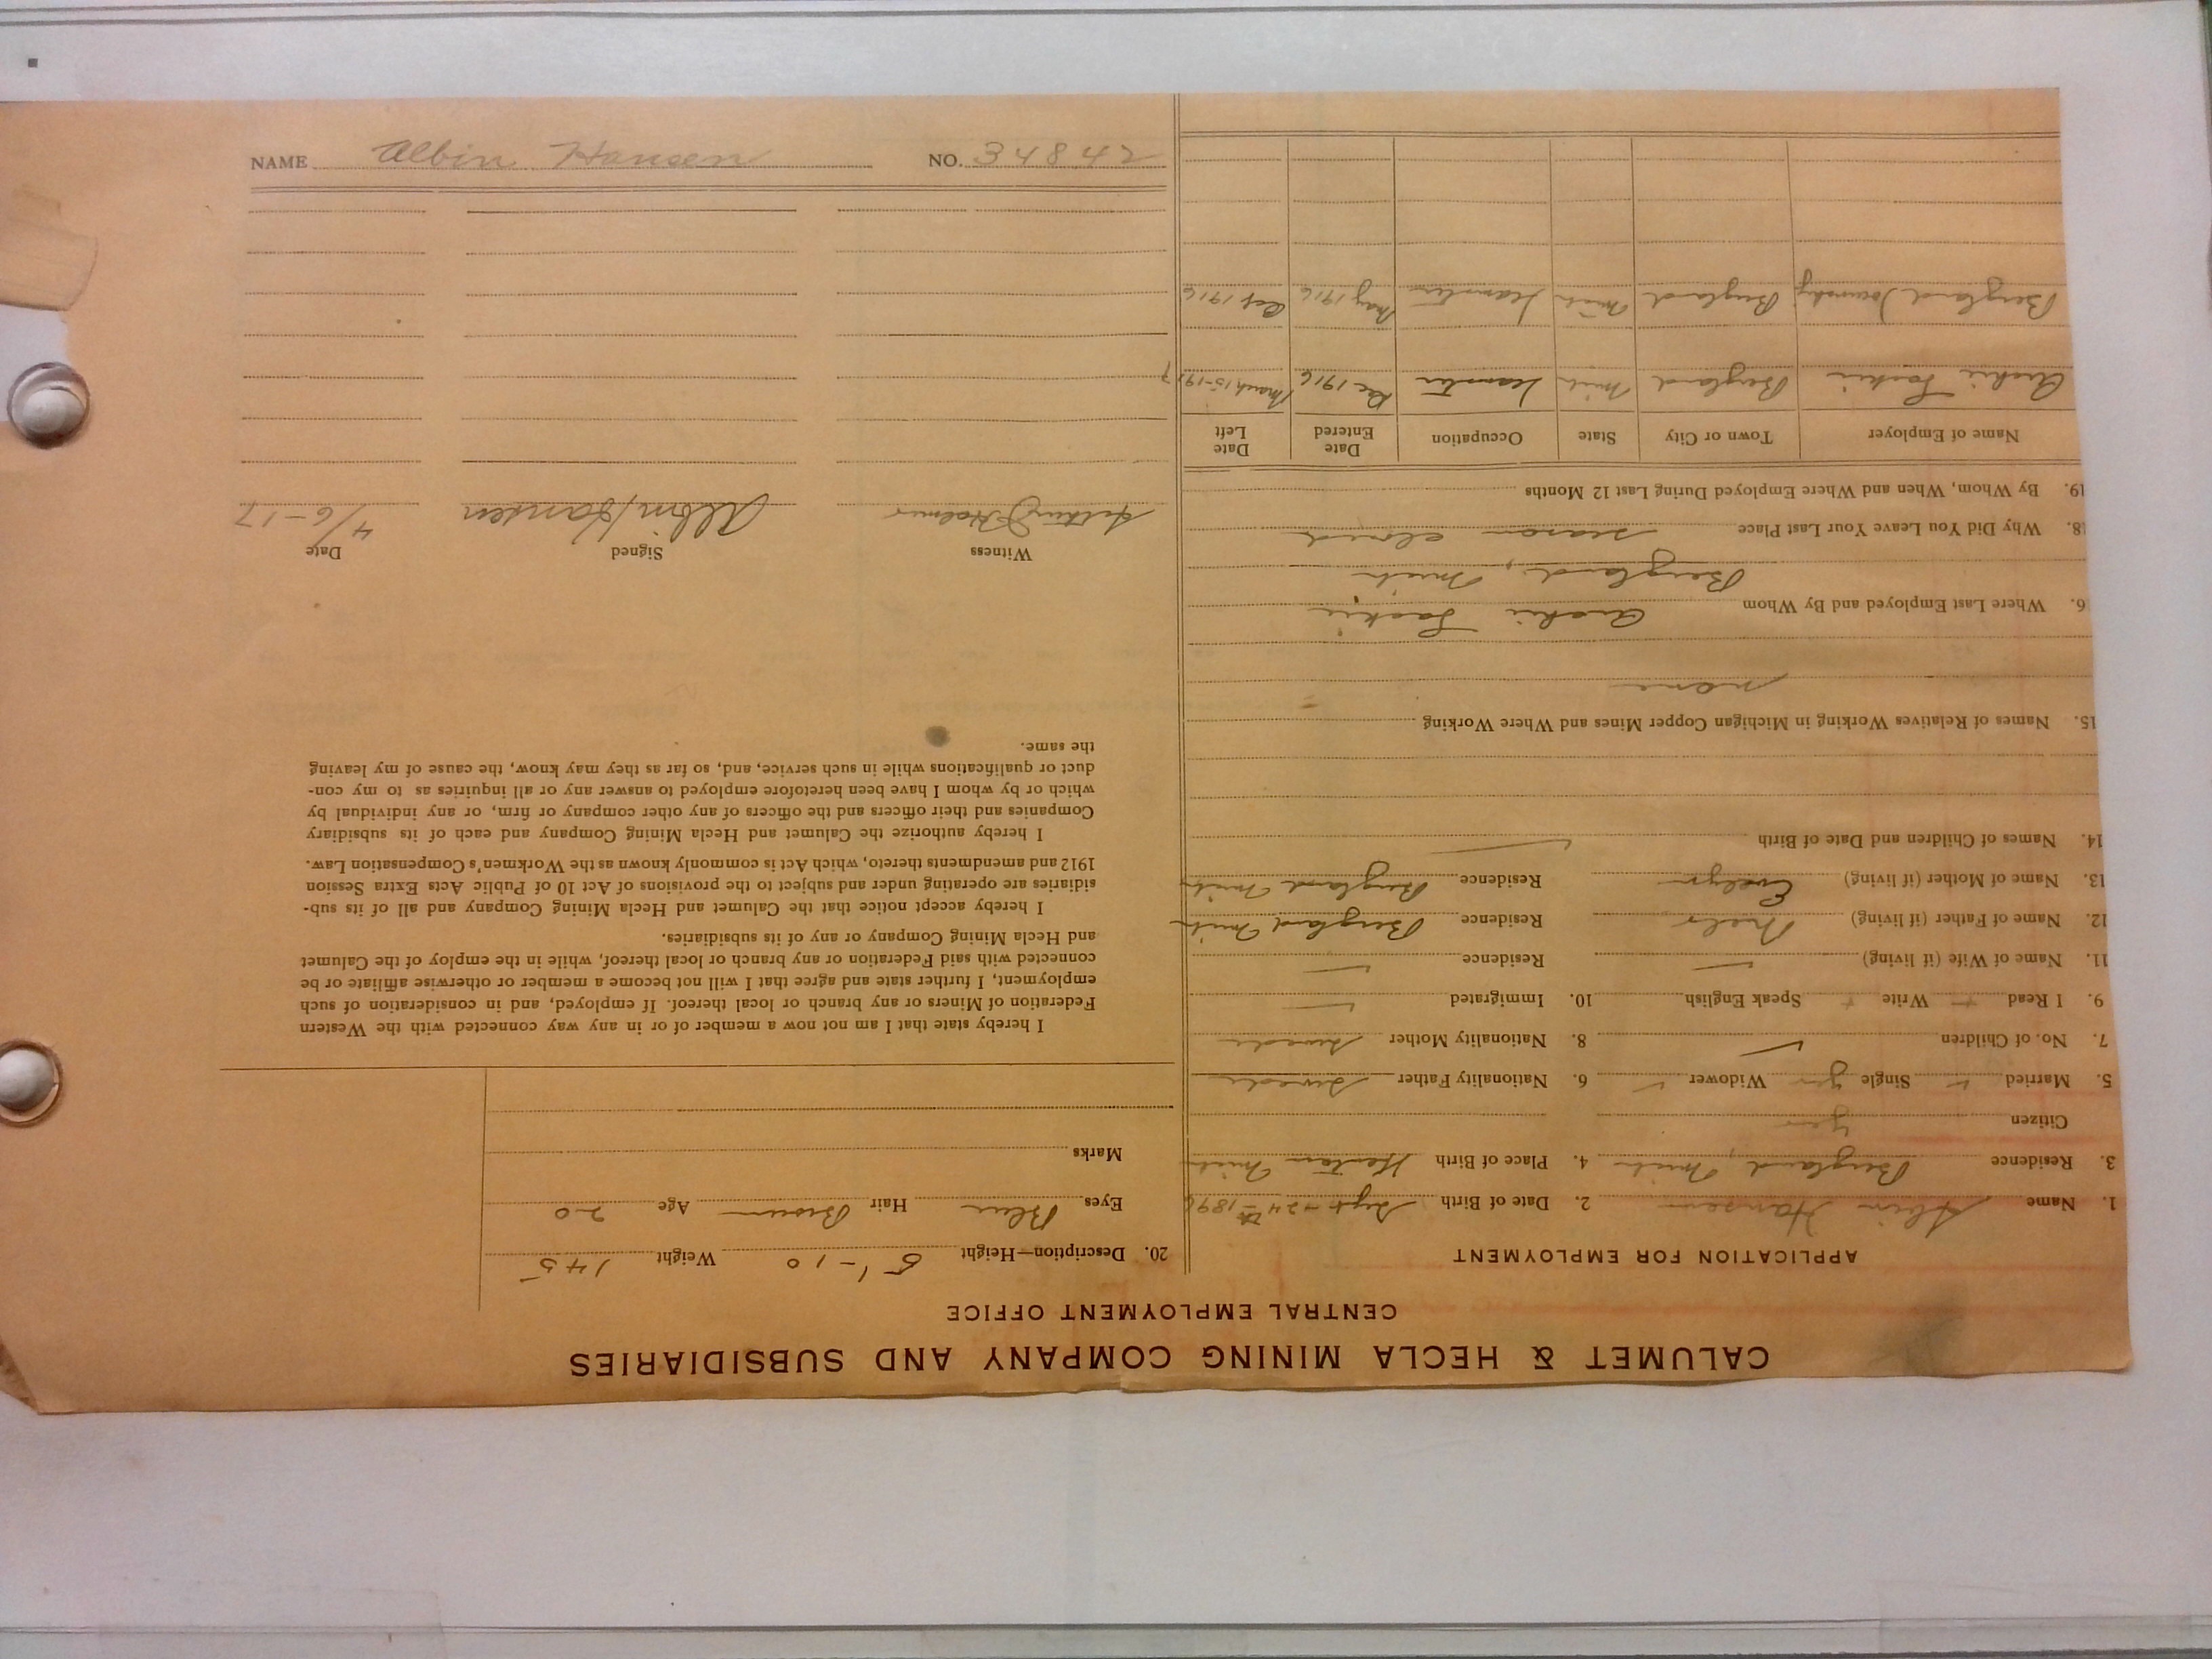 CALUMET & HECLA MINING COMPANY AND SUBSIDIARIES
CENTRAL EMPLOYMENT OFFICE
APPLICATION FOR EMPLOYMENT
1. Name Albin Hansen 2. Date of Birth Sept 24th 1896
3. Residence Bergland, Mich 4. Place of Birth Mich
Citizen yes
5. Married Single yes Widower 6. Nationality Father Swede
7. No. of Children 8. Nationality Mother Swede
9. I Read + Write + Speak English 10. Immigrated
11. Name of Wife (if living) Residence
12. Name of Father (if living) Nels Residence Bergland Mich
13. Name of Mother (if living) Evelyn Residence Bergland Mich
14. Names of Children and Date of Birth
15. Names of Relatives Working in Michigan Copper Mines and Where Working
none
6. Where Last Employed and By Whom Archie
Bergland, Mich
18. Why Did You Leave Your Last Place season closed
19. By Whom, When and Where Employed During Last 12 Months
Name of Employer Town or City State Occupation Date Entered Date Left
Archie Bergland Mich Teamster Dec 1916 March 15-1917
Bergland Township Bergland Mich Teamster May 1916 Oct 1916
20. Description—Height 5'-10 Weight 145
Eyes Blue Hair Brown Age 20
Marks
I hereby state that I am not now a member of or in any way connected with the Western
Federation of Miners or any branch or local thereof. If employed, and in consideration of such
employment, I further state and agree that I will not become a member or otherwise affiliate or be
connected with said Federation or any branch or local thereof, while in the employ of the Calumet
and Hecla Mining Company or any of its subsidiaries.
I hereby accept notice that the Calumet and Hecla Mining Company and all of its sub-
sidiaries are operating under and subject to the provisions of Act 10 of Public Acts Extra Session
1912 and amendments thereto, which Act is commonly known as the Workmen's Compensation Law.
I hereby authorize the Calumet and Hecla Mining Company and each of its subsidiary
Companies and their officers and the officers of any other company or firm, or any individual by
which or by whom I have been heretofore employed to answer any or all inquiries as to my con-
duct or qualifications while in such service, and, so far as they may know, the cause of my leaving
the same.
Witness Signed Date
Arthur J Holmes Albin Hansen 4/6-17
NAME Albin Hansen NO. 34842